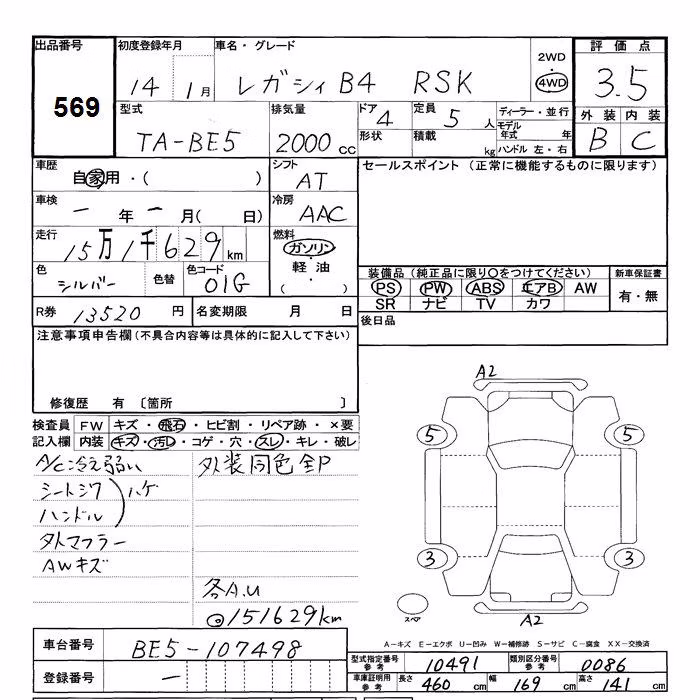 出品番号 初度登録年月 車名・グレード 2WD 評価点
569 14 1月 レガシィ B4 RSK 4WD 3.5
型式 排気量 ドア 4 定員 5人 ディーラー・並行 外装 内装
TA-BE5 2000cc 形状 積載 kg モデル年式 年 B C
ハンドル 左・右
車歴 シフト セールスポイント (正常に機能するものに限ります)
自家用・( ) AT
車検 冷房
ー年ー月( 日) AAC
走行 燃料
15万1千629km ガソリン
色 色替 色コード ・軽油
シルバー 01G ( )
装備品(純正品に限り○をつけてください) 新車保証書
PS PW ABS エアB AW 有・無
SR ナビ TV カワ
R券 13520円 名変期限 月 日 後日品
注意事項申告欄(不具合内容等は具体的に記入して下さい)
修復歴 有 〔箇所 〕
検査員 FW キズ・飛石・ヒビ割・リペア跡・×要
記入欄 内装 キズ・汚レ・コゲ・穴・スレ・キレ・破レ
A/C冷え弱い 外装同色全P
シートシワ ハゲ
ハンドル
外マフラー
AWキズ
各A.U
@151629km
A2
5 5
3 3
スペア A2
A-キズ E-エクボ U-凹み W-補修跡 S-サビ C-腐食 XX-交換済
車台番号 BE5-107498
登録番号 ー
型式指定番号 参考 10491 類別区分番号 参考 0086
車庫証明用 参考 長さ 460cm 幅 169cm 高さ 141cm